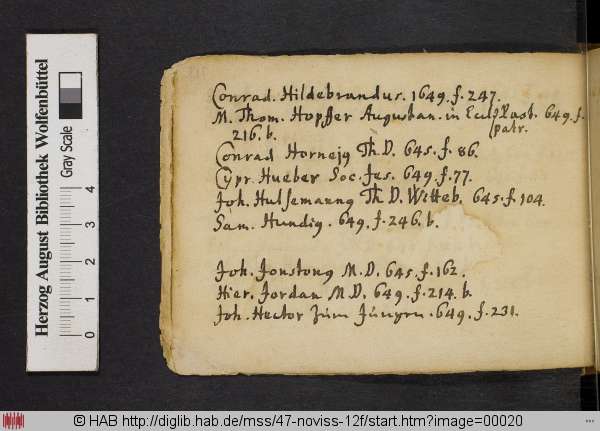 Conrad. Hildebrandus. 1649. f. 247.
M. Thom. Hopffer Augustan. in Eccl. Past. 649. f.
patr.
216. b.
Conrad Hornejꝰ Th. D. 645. f. 86.
Cypr. Hueber Soc. Jes. 649. f. 77.
Joh. Hulsemannꝰ Th. D. Witteb. 645. f. 104.
Sam. Hundig. 649. f. 246. b.
Joh. Jonstonꝰ M. D. 645. f. 162.
Hier. Jordan M. D. 649. f. 214. b.
Joh. Hector zům Jůngen. 649. f. 231.
Herzog August Bibliothek Wolfenbüttel
Gray Scale
0 1 2 3 4
© HAB http://diglib.hab.de/mss/47-noviss-12f/start.htm?image=00020